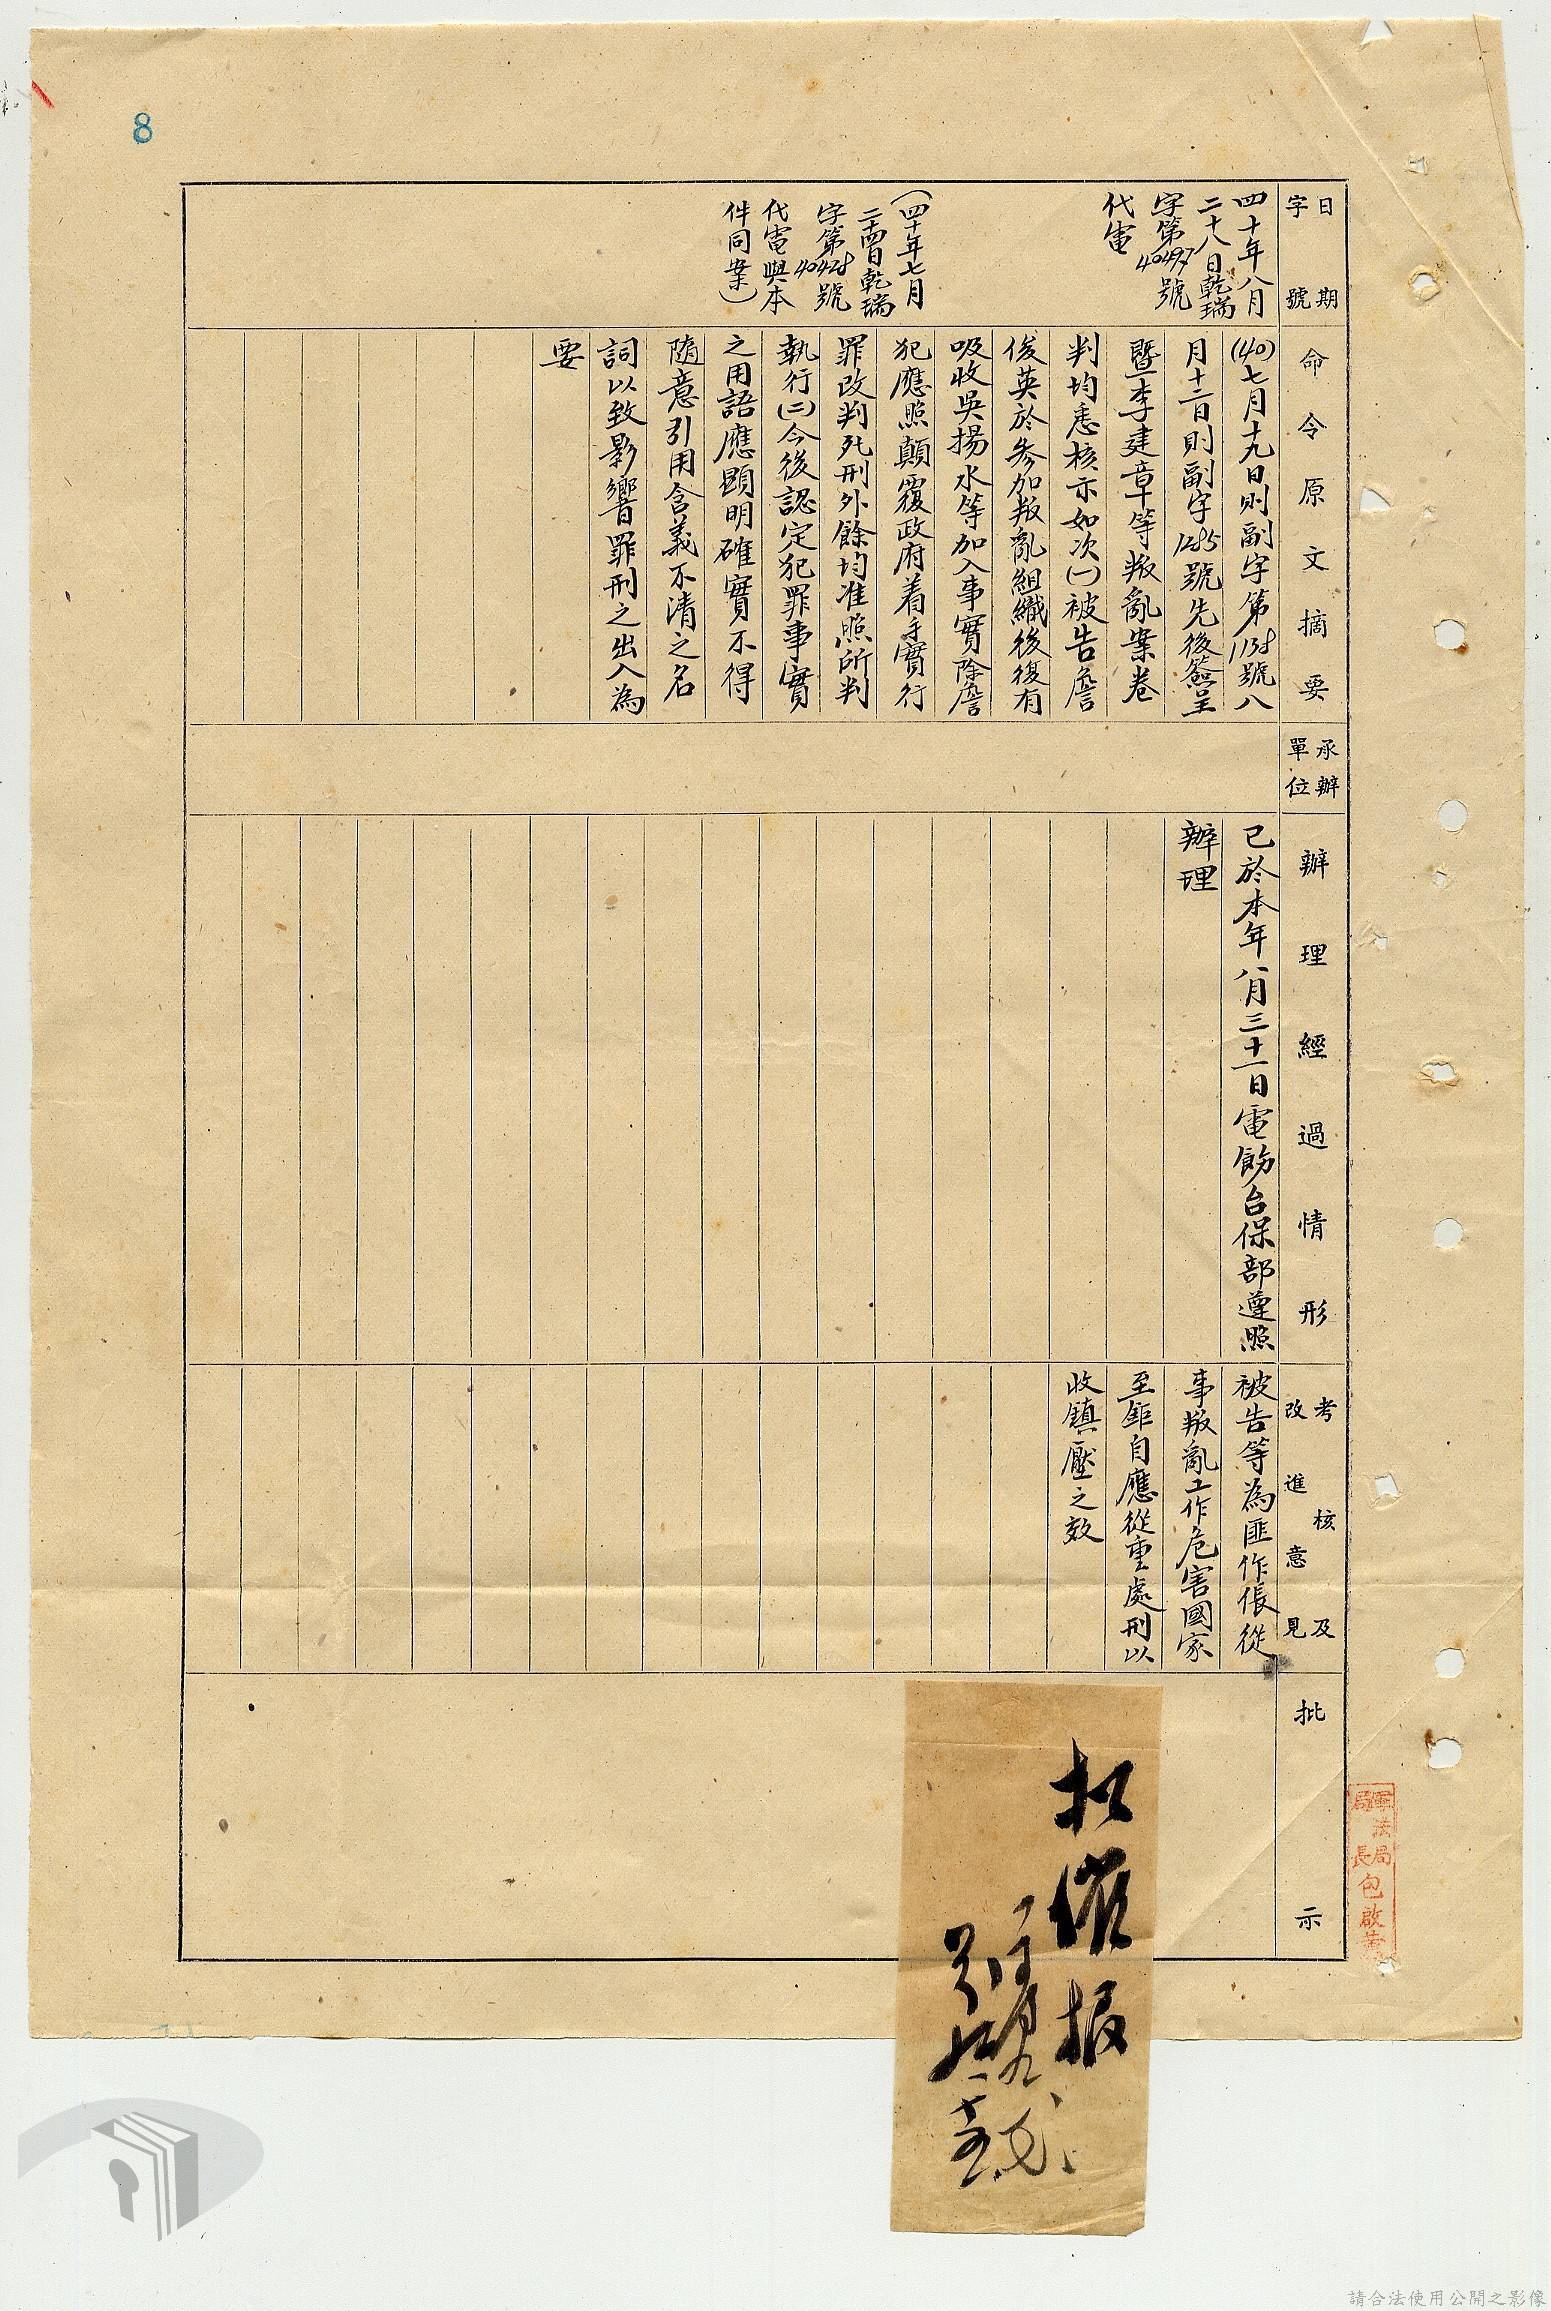 8
日期
字號
四十年八月
二十八日乾瑞
字第40497號
代電
（四十年七月
二十四日乾瑞
字第40428號
代電與本
件同案）
命令原文摘要
(40)七月十九日則副字第1138號八
月十二日則副字1285號先後簽呈
暨李建章等叛亂案卷
判均悉核示如次(一)被告詹
俊英於參加叛亂組織後復有
吸收吳揚水等加入事實除詹
犯應照顛覆政府着手實行
罪改判死刑外餘均准照所判
執行(二)今後認定犯罪事實
之用語應顯明確實不得
隨意引用含義不清之名
詞以致影響罪刑之出入為
要
承辦
單位
辦理經過情形
已於本年八月三十一日電飭台保部遵照
辦理
考核及
改進意見
被告等為匪作倀從
事叛亂工作危害國家
至鉅自應從重處刑以
收鎮壓之效
批示
軍法局
局長包啟黃
請合法使用公開之影像